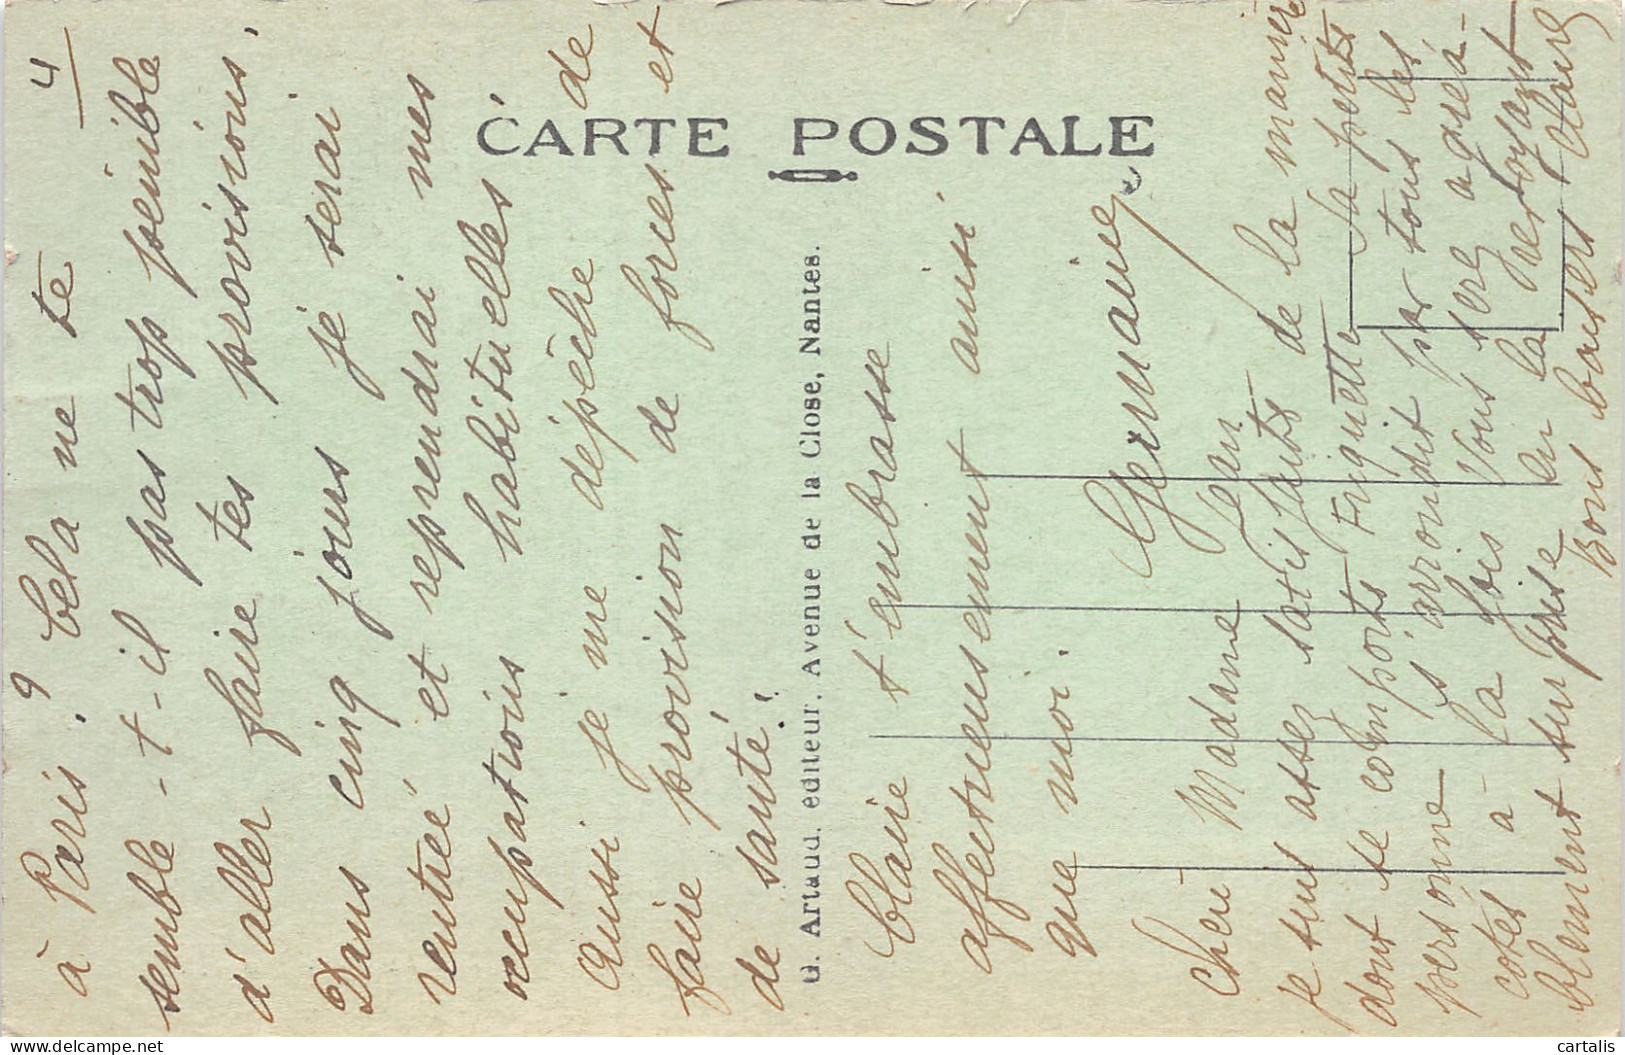 CARTE POSTALE
G. Artaud, editeur. Avenue de la Close, Nantes.
4
à Paris ? Cela ne te
semble-t-il pas trop pénible
d'aller faire tes provisions.
Dans cinq jours je serai
rentrée et reprendrai mes
occupations habituelles
Aussi je me dépêche de
faire provision de forces et
de santé !
Claire t'embrasse
affectueusement ainsi
que moi.
Germaine
Chère Madame Jean
Je suis assez satisfaite de la manière
dont se comporte Friquette Sa petite
personne s'arrondit par tous les
cotés à la fois Vous serez agréa-
blement surprise en la revoyant
Bons baisers Claire
cartalis
www.delcampe.net